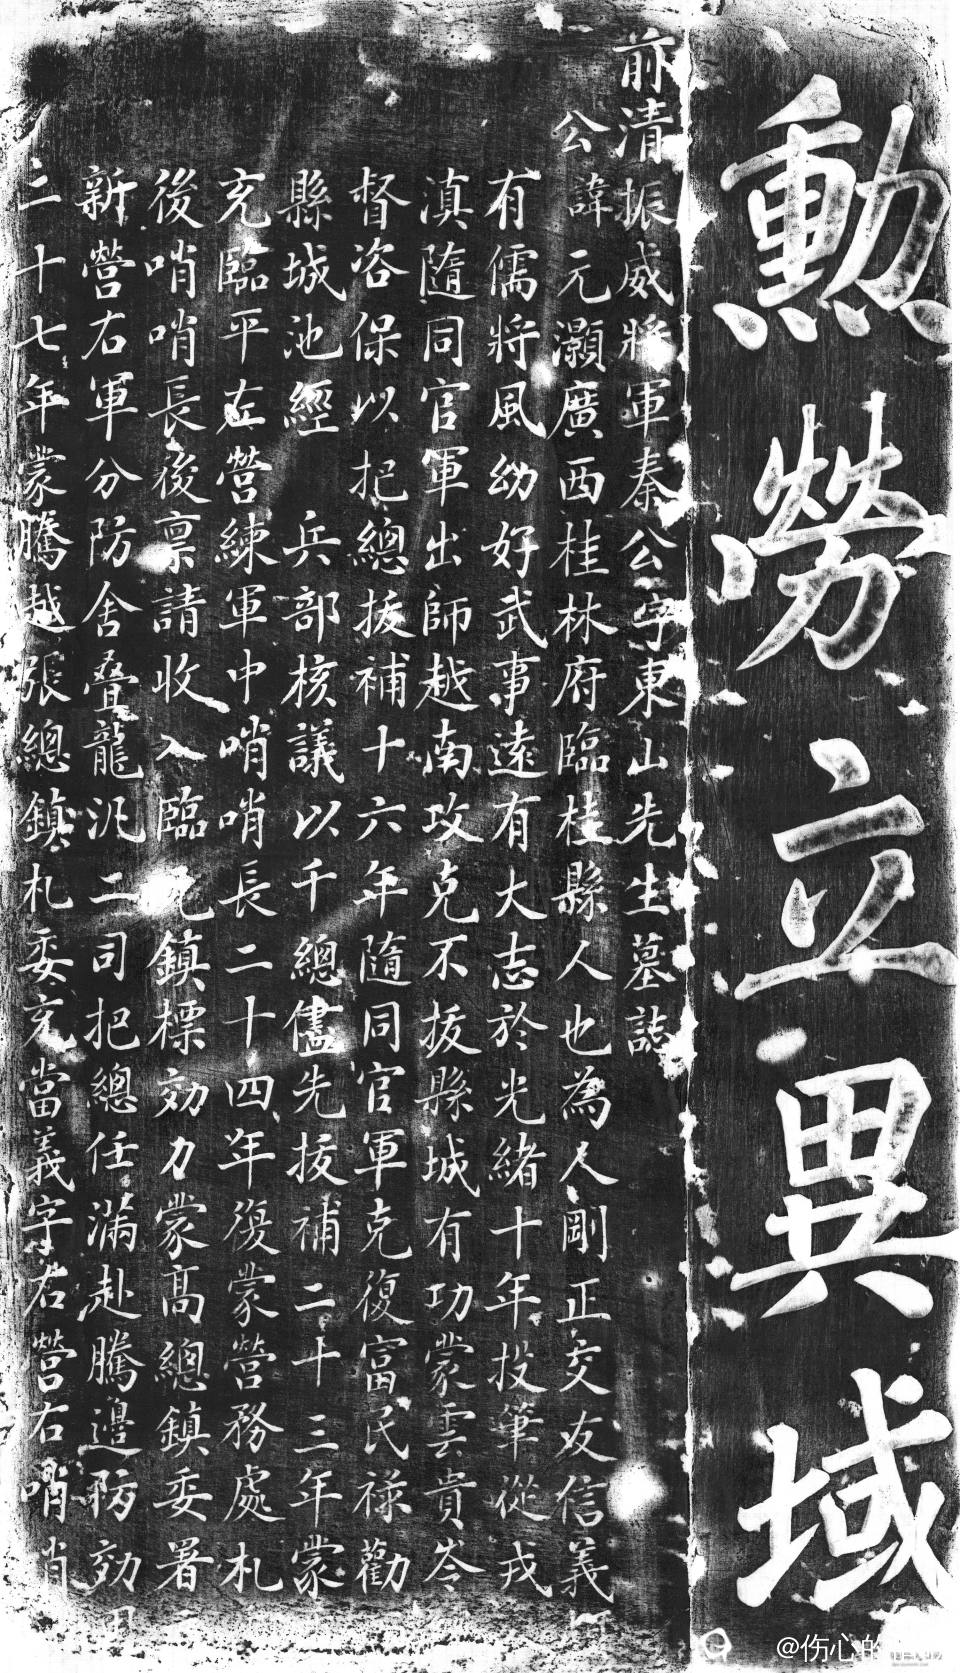 勲勞立異域
前清振威將軍秦公字東山先生墓誌
公諱元灝廣西桂林府臨桂縣人也為人剛正交友信義
有儒將風幼好武事遠有大志於光緒十年投筆從戎
滇隨同官軍出師越南攻克不拔縣城有功蒙雲貴岑
督咨保以把總拔補十六年隨同官軍克復富民祿勸
縣城池經 兵部核議以千總儘先拔補二十三年蒙
充臨平左營練軍中哨哨長二十四年復蒙營務處札
後哨哨長後禀請收入臨元鎮標効力蒙高總鎮委署
新營右軍分防舍叠龍汛二司把總任滿赴騰邊防効
二十七年蒙騰越張總鎮札委充當義字右營右哨哨
@伤心的